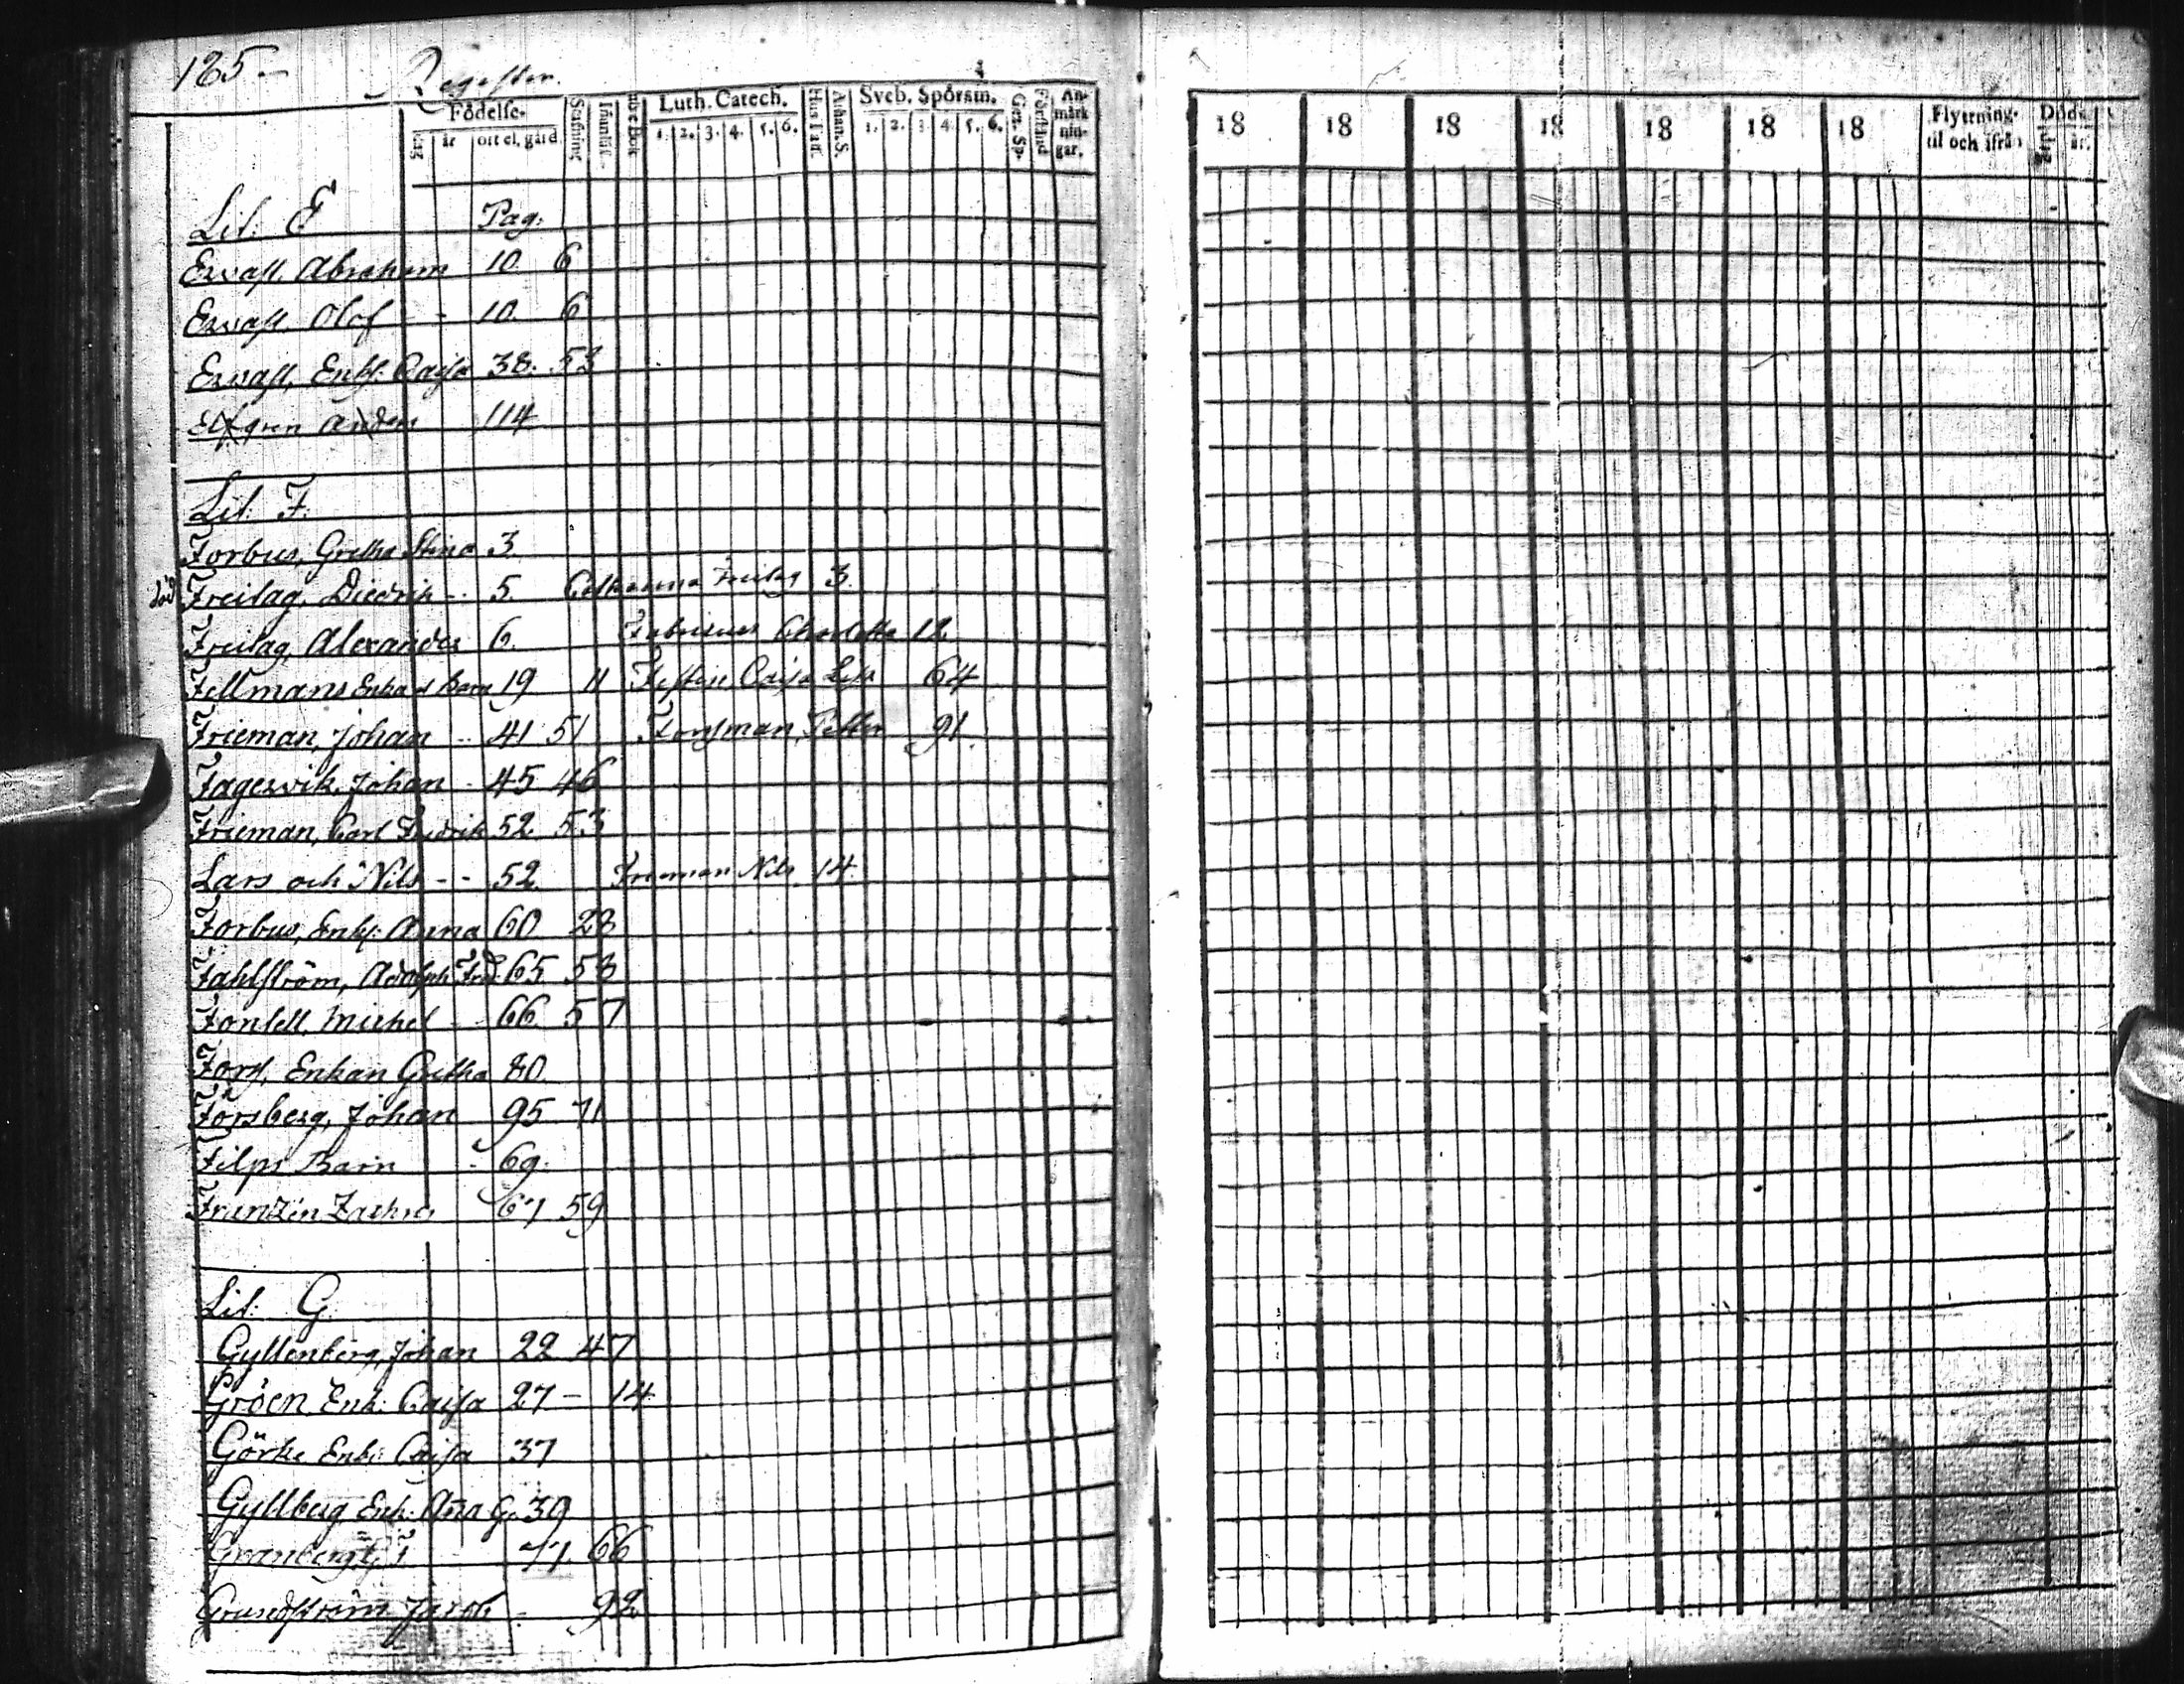 185 Register.
Födelse-
dag år ort el. gård.
Stafning
Luth. Catech.
1. 2. 3. 4. 5. 6.
Athan. S.
Sveb. Spörsm.
1. 2. 3. 4. 5. 6.
Förstånd
An-
märk
nin-
gar.
18 18 18 18 18 18 18
Flyttning
til och ifrån
Lit: E Pag:
Ervast, Abraham 10. 6
Ervast, Olof - 10. 6
Ervast, Enk: Caisa 38. 53
Elfgren Anders 114
Lit: F.
Forbus, Gretha Stina 3.
död Freitag, Diedrik - - 5. Catharina Freitag 3.
Freitag, Alexander 6. Fabricius Charlotta 12
Fellmans Enka o Barn 19 11 Caisa Lisa 64
Frieman, Johan - - 41 51 Forsman, Petter 91.
Fagervik, Johan - 45 46
Frieman, Carl Fredrik 52. 53
Lars och Nils - - 52. Frieman Nils 14.
Forbus, Enk: Anna 60 28
Fahlström, Adolph Fred. 65 53
Fonsell, Michel - - 66. 57
Fors, Enkan Gretha 80.
Forsberg, Johan 95 71
Filps Barn - 69.
Franzén Zachris 67 59
Lit: G.
Gyllenberg, Johan 22 47
Gröen, Enk: Caisa 27 - 14.
Görke Enk: Caisa 37
Gyllberg Enk: Anna G. 39
Granberg 77. 66
Grundström Jacob - 92